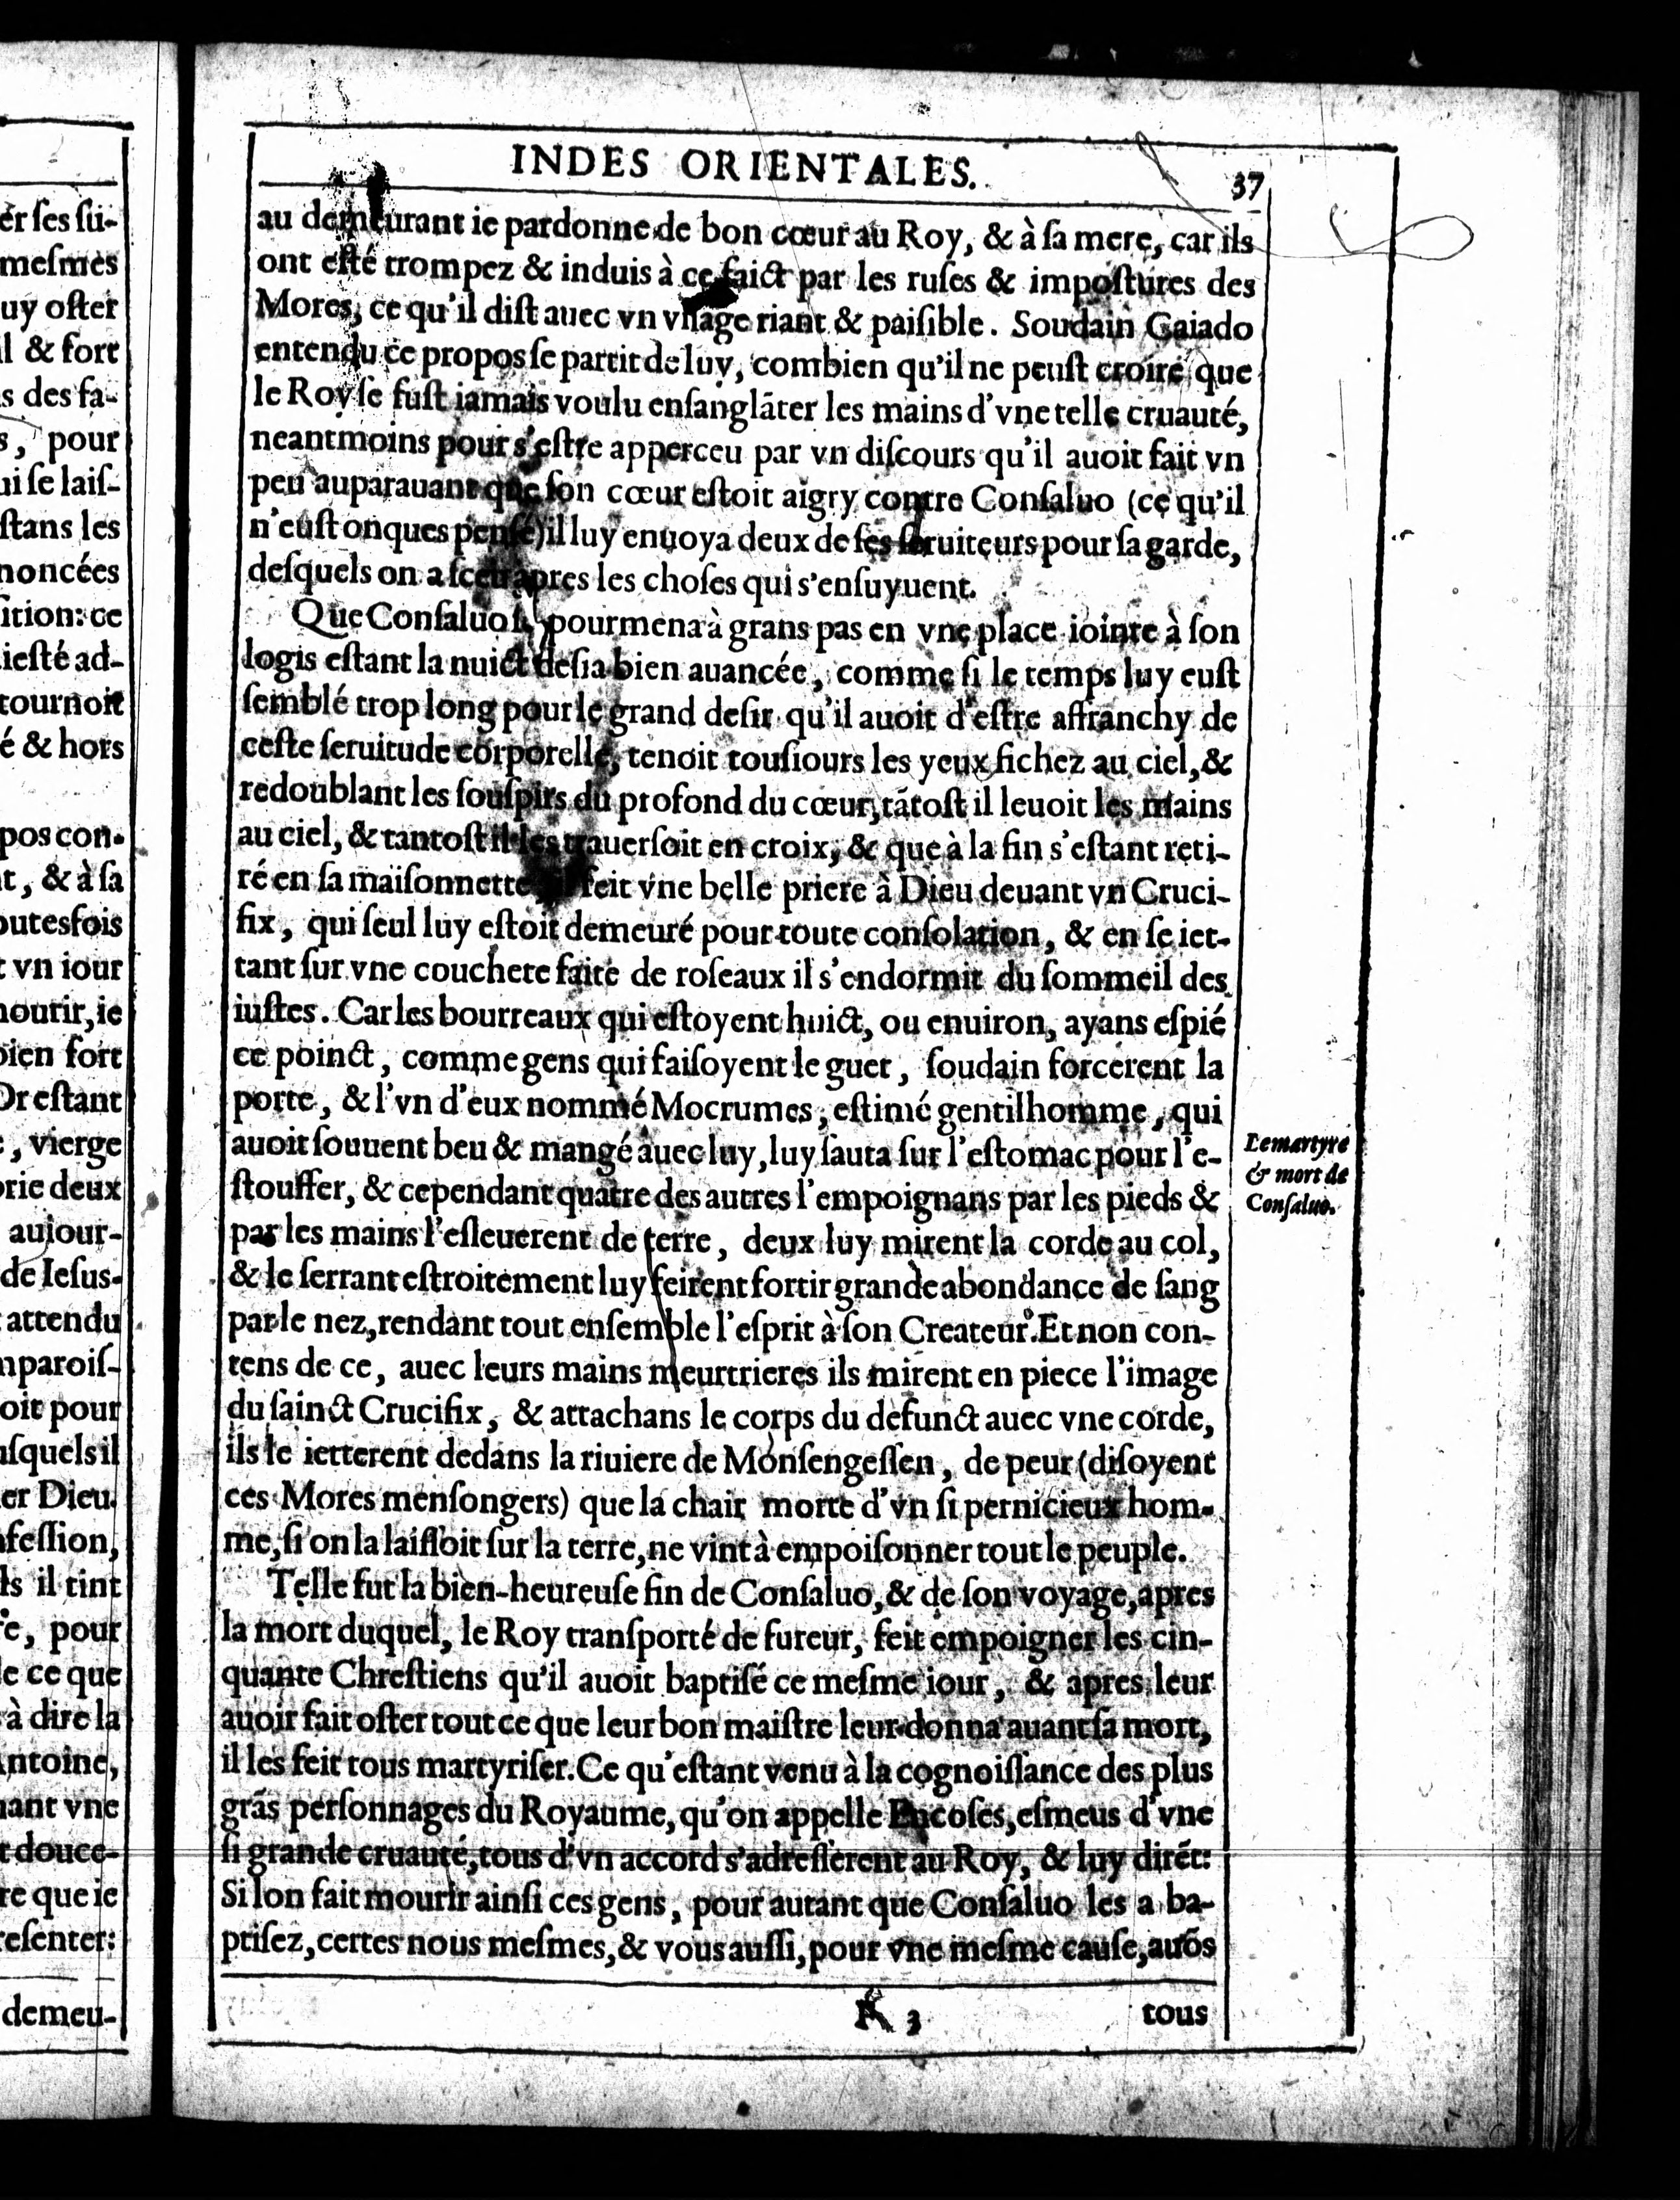 ér ſes ſu-
meſmes
uy oſter
l & fort
s des fa-
s, pour
ui ſe laiſ-
ſtans les
noncées
ſition: ce
ieſté ad-
tournoit
é & hors
pos con-
t, & à ſa
outesfois
t vn iour
mourir, ie
bien fort
Or eſtant
, vierge
orie deux
aujour-
de Ieſus-
attendu
mparoiſ-
oit pour
uſquels il
er Dieu.
nfeſſion,
ls il tint
e, pour
e ce que
à dire la
Antoine,
nant vne
t douce-
re que ie
reſenter:
demeu-
INDES ORIENTALES. 37
au demeurant ie pardonne de bon cœur au Roy, & à ſa mere, car ils
ont eſté trompez & induis à ce faict par les ruſes & impoſtures des
Mores, ce qu'il diſt auec vn viſage riant & paiſible. Soudain Gaiado
entendu ce propos ſe partit de luy, combien qu'il ne peuſt croire que
le Roy ſe fuſt iamais voulu enſanglāter les mains d'vne telle cruauté,
neantmoins pour s'eſtre apperceu par vn diſcours qu'il auoit fait vn
peu auparauant que ſon cœur eſtoit aigry contre Conſaluo (ce qu'il
n'euſt onques penſé) il luy enuoya deux de ſes ſeruiteurs pour ſa garde,
deſquels on a ſceu apres les choſes qui s'enſuyuent.
Que Conſaluo ſe pourmena à grans pas en vne place iointe à ſon
logis eſtant la nuict deſia bien auancée, comme ſi le temps luy euſt
ſemblé trop long pour le grand deſir qu'il auoit d'eſtre affranchy de
ceſte ſeruitude corporelle, tenoit touſiours les yeux fichez au ciel, &
redoublant les ſouſpirs du profond du cœur, tātoſt il leuoit les mains
au ciel, & tantoſt il les trauerſoit en croix, & que à la fin s'eſtant reti-
ré en ſa maiſonnette il feit vne belle priere à Dieu deuant vn Cruci-
fix, qui ſeul luy eſtoit demeuré pour toute conſolation, & en ſe iet-
tant ſur vne couchete faite de roſeaux il s'endormit du ſommeil des
iuſtes. Car les bourreaux qui eſtoyent huict, ou enuiron, ayans eſpié
ce poinct, comme gens qui faiſoyent le guet, ſoudain forcerent la
porte, & l'vn d'eux nommé Mocrumes, eſtimé gentilhomme, qui
auoit ſouuent beu & mangé auec luy, luy ſauta ſur l'eſtomac pour l'e-
ſtouffer, & cependant quatre des autres l'empoignans par les pieds &
par les mains l'eſleuerent de terre, deux luy mirent la corde au col,
& le ſerrant eſtroitement luy feirent ſortir grande abondance de ſang
par le nez, rendant tout enſemble l'eſprit à ſon Createur. Et non con-
tens de ce, auec leurs mains meurtrieres ils mirent en piece l'image
du ſainct Crucifix, & attachans le corps du defunct auec vne corde,
ils le ietterent dedans la riuiere de Monſengeſſen, de peur (diſoyent
ces Mores menſongers) que la chair morte d'vn ſi pernicieux hom-
me, ſi on la laiſſoit ſur la terre, ne vint à empoiſonner tout le peuple.
Telle fut la bien-heureuſe fin de Conſaluo, & de ſon voyage, apres
la mort duquel, le Roy tranſporté de fureur, feit empoigner les cin-
quante Chreſtiens qu'il auoit baptiſé ce meſme iour, & apres leur
auoir fait oſter tout ce que leur bon maiſtre leur donna auant ſa mort,
il les feit tous martyriſer. Ce qu'eſtant venu à la cognoiſſance des plus
grās perſonnages du Royaume, qu'on appelle Encoſes, eſmeus d'vne
ſi grande cruauté, tous d'vn accord s'adreſſerent au Roy, & luy dirēt:
Si lon fait mourir ainſi ces gens, pour autant que Conſaluo les a ba-
ptiſez, certes nous meſmes, & vous auſſi, pour vne meſme cauſe, auōs
K 3 tous
Le martyre
& mort de
Conſaluo.